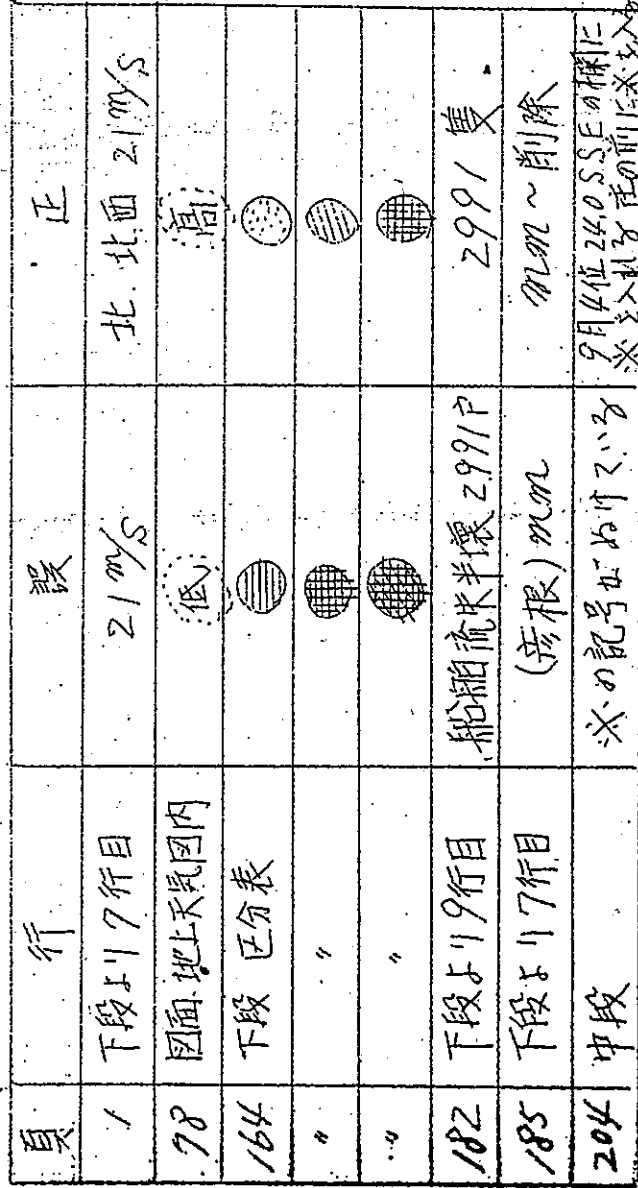 頁 行 誤 正
1 下段より7行目 21m/s 北.北西 21m/s
78 図面.地上天気図内 低 高
164 下段 区分表
〃 〃
〃 〃
182 下段より9行目 船舶流失半壊 2991戸 2991隻
185 下段より7行目 (彦根)mm mm~削除
204 中段 ※の記号がぬけている 9月4位24.0 SSEの欄に
※を入れる 値の前に※を入